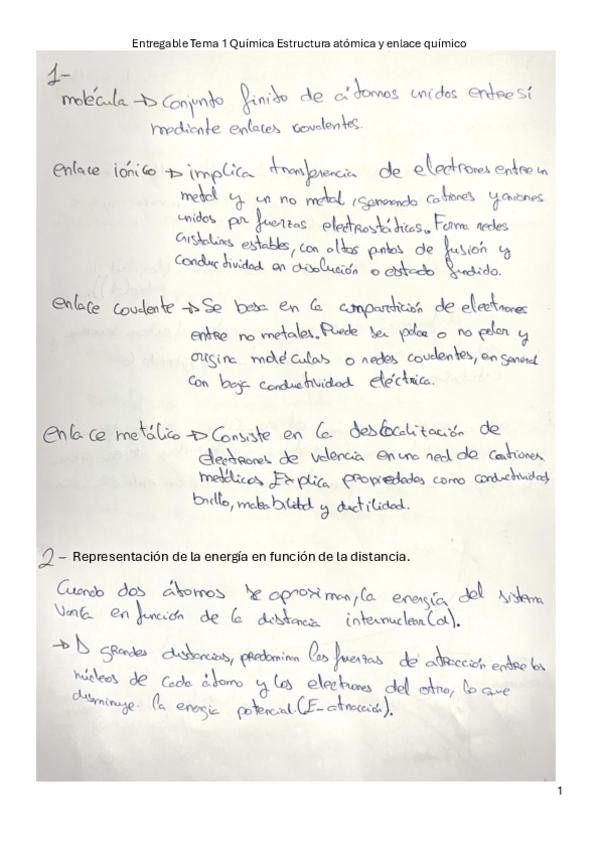 Entregable Tema 1 Química Estructura atómica y enlace químico
1-
molécula → Conjunto finito de átomos unidos entre sí
mediante enlaces covalentes.
enlace iónico → implica transferencia de electrones entre un
metal y un no metal, generando cationes y aniones
unidos por fuerzas electrostáticas. Forma redes
cristalinas estables, con altos puntos de fusión y
conductividad en disolución o estado fundido.
enlace covalente → Se basa en la compartición de electrones
entre no metales. Puede ser polar o no polar y
origina moléculas o redes covalentes, en general
con baja conductividad eléctrica.
enlace metálico → Consiste en la deslocalización de
electrones de valencia en una red de cationes
metálicos. Explica propiedades como conductividad
brillo, maleabilidad y ductilidad.
2 - Representación de la energía en función de la distancia.
Cuando dos átomos se aproximan, la energía del sistema
varía en función de la distancia internuclear (d).
→ A grandes distancias, predominan las fuerzas de atracción entre los
núcleos de cada átomo y los electrones del otro, lo que
disminuye la energía potencial. (E-atracción).
1